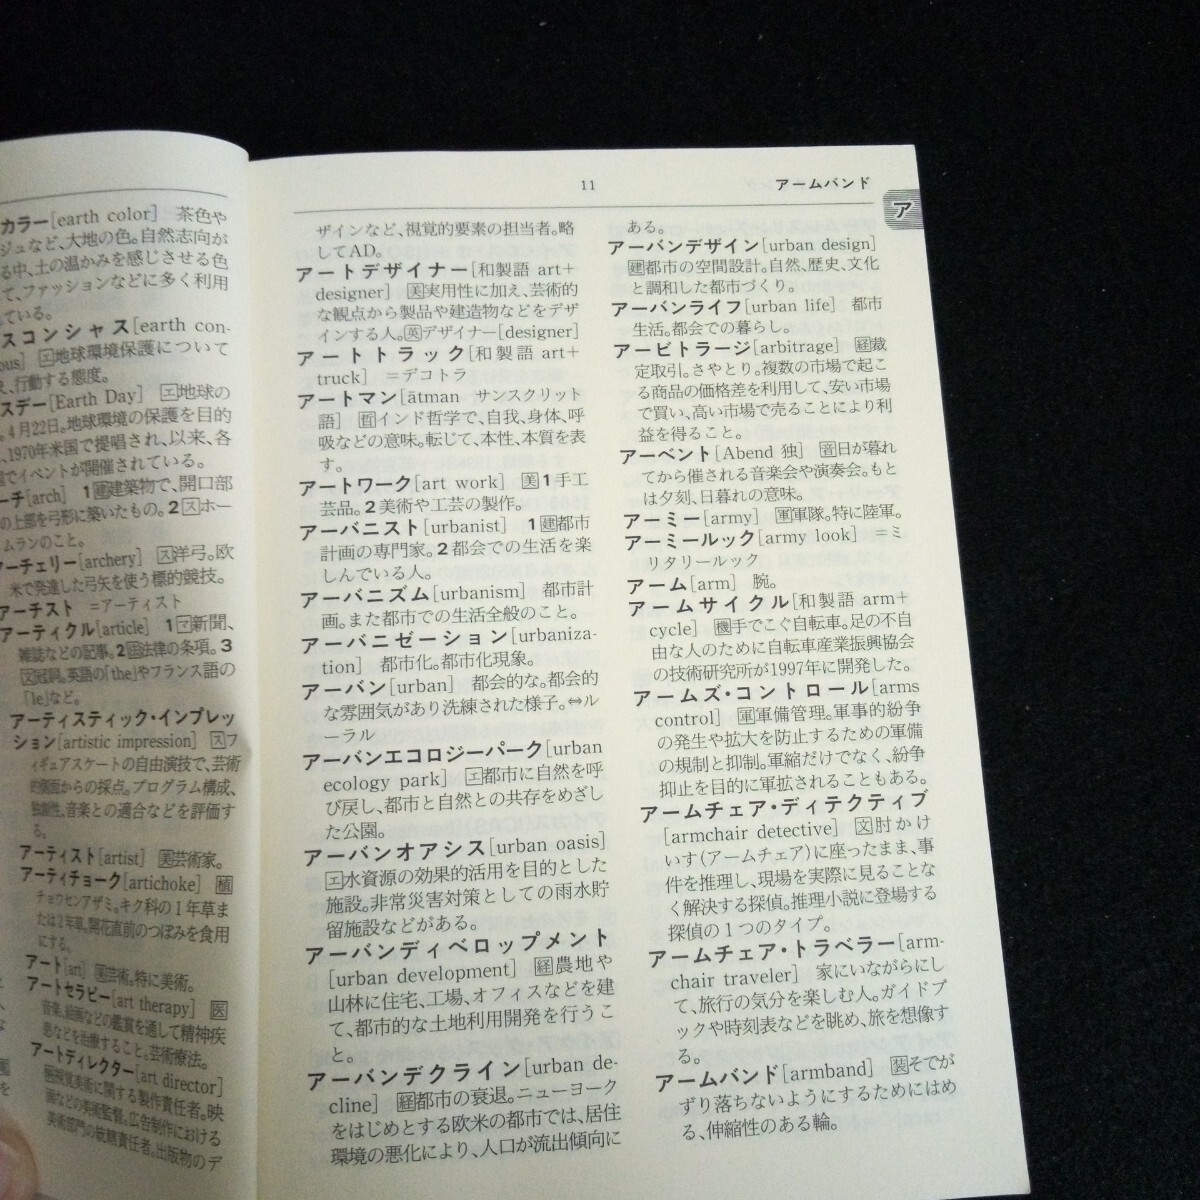 カラー[earth color] 茶色や
ジュなど、大地の色。自然志向が
る中、土の温かみを感じさせる色
て、ファッションなどに多く利用
ている。
スコンシャス[earth con-
ous] エ地球環境保護について
、行動する態度。
スデー[Earth Day] エ地球の
。4月22日。地球環境の保護を目的
、1970年米国で提唱され、以来、各
でイベントが開催されている。
ーチ[arch] 1建建築物で、開口部
の上部を弓形に築いたもの。2スホー
ムランのこと。
アーチェリー[archery] ス洋弓。欧
米で発達した弓矢を使う標的競技。
アーチスト =アーティスト
アーティクル[article] 1マ新聞、
雑誌などの記事。2法法律の条項。3
文冠詞。英語の「the」やフランス語の
「le」など。
アーティスティック・インプレッ
ション[artistic impression] スフ
ィギュアスケートの自由演技で、芸術
的側面からの採点。プログラム構成、
独創性、音楽との適合などを評価す
る。
アーティスト[artist] 美芸術家。
アーティチョーク[artichoke] 植
チョウセンアザミ。キク科の1年草ま
たは2年草。開花直前のつぼみを食用
にする。
アート[art] 美芸術。特に美術。
アートセラピー[art therapy] 医
音楽、絵画などの鑑賞を通して精神疾
患などを治療すること。芸術療法。
アートディレクター[art director]
映視覚美術に関する製作責任者。映
画などの美術監督。広告制作における
美術部門の統轄責任者。出版物のデ
11
アームバンド
ア
ザインなど、視覚的要素の担当者。略
してAD。
アートデザイナー[和製語 art+
designer] 美実用性に加え、芸術的
な観点から製品や建造物などをデザ
インする人。英デザイナー[designer]
アートトラック[和製語 art+
truck] =デコトラ
アートマン[ātman サンスクリット
語] 哲インド哲学で、自我、身体、呼
吸などの意味。転じて、本性、本質を表
す。
アートワーク[art work] 美1手工
芸品。2美術や工芸の製作。
アーバニスト[urbanist] 1建都市
計画の専門家。2都会での生活を楽
しんでいる人。
アーバニズム[urbanism] 都市計
画。また都市での生活全般のこと。
アーバニゼーション[urbaniza-
tion] 都市化。都市化現象。
アーバン[urban] 都会的な。都会的
な雰囲気があり洗練された様子。⇔ル
ーラル
アーバンエコロジーパーク[urban
ecology park] エ都市に自然を呼
び戻し、都市と自然との共存をめざし
た公園。
アーバンオアシス[urban oasis]
エ水資源の効果的活用を目的とした
施設。非常災害対策としての雨水貯
留施設などがある。
アーバンディベロップメント
[urban development] 経農地や
山林に住宅、工場、オフィスなどを建
て、都市的な土地利用開発を行うこ
と。
アーバンデクライン[urban de-
cline] 経都市の衰退。ニューヨーク
をはじめとする欧米の都市では、居住
環境の悪化により、人口が流出傾向に
ある。
アーバンデザイン[urban design]
建都市の空間設計。自然、歴史、文化
と調和した都市づくり。
アーバンライフ[urban life] 都市
生活。都会での暮らし。
アービトラージ[arbitrage] 経裁
定取引。さやとり。複数の市場で起こ
る商品の価格差を利用して、安い市場
で買い、高い市場で売ることにより利
益を得ること。
アーベント[Abend 独] 音日が暮れ
てから催される音楽会や演奏会。もと
は夕刻、日暮れの意味。
アーミー[army] 軍軍隊。特に陸軍。
アーミールック[army look] =ミ
リタリールック
アーム[arm] 腕。
アームサイクル[和製語 arm+
cycle] 機手でこぐ自転車。足の不自
由な人のために自転車産業振興協会
の技術研究所が1997年に開発した。
アームズ・コントロール[arms
control] 軍軍備管理。軍事的紛争
の発生や拡大を防止するための軍備
の規制と抑制。軍縮だけでなく、紛争
抑止を目的に軍拡されることもある。
アームチェア・ディテクティブ
[armchair detective] 文肘かけ
いす(アームチェア)に座ったまま、事
件を推理し、現場を実際に見ることな
く解決する探偵。推理小説に登場する
探偵の1つのタイプ。
アームチェア・トラベラー[arm-
chair traveler] 家にいながらにし
て、旅行の気分を楽しむ人。ガイドブ
ックや時刻表などを眺め、旅を想像す
る。
アームバンド[armband] 装そでが
ずり落ちないようにするためにはめ
る、伸縮性のある輪。